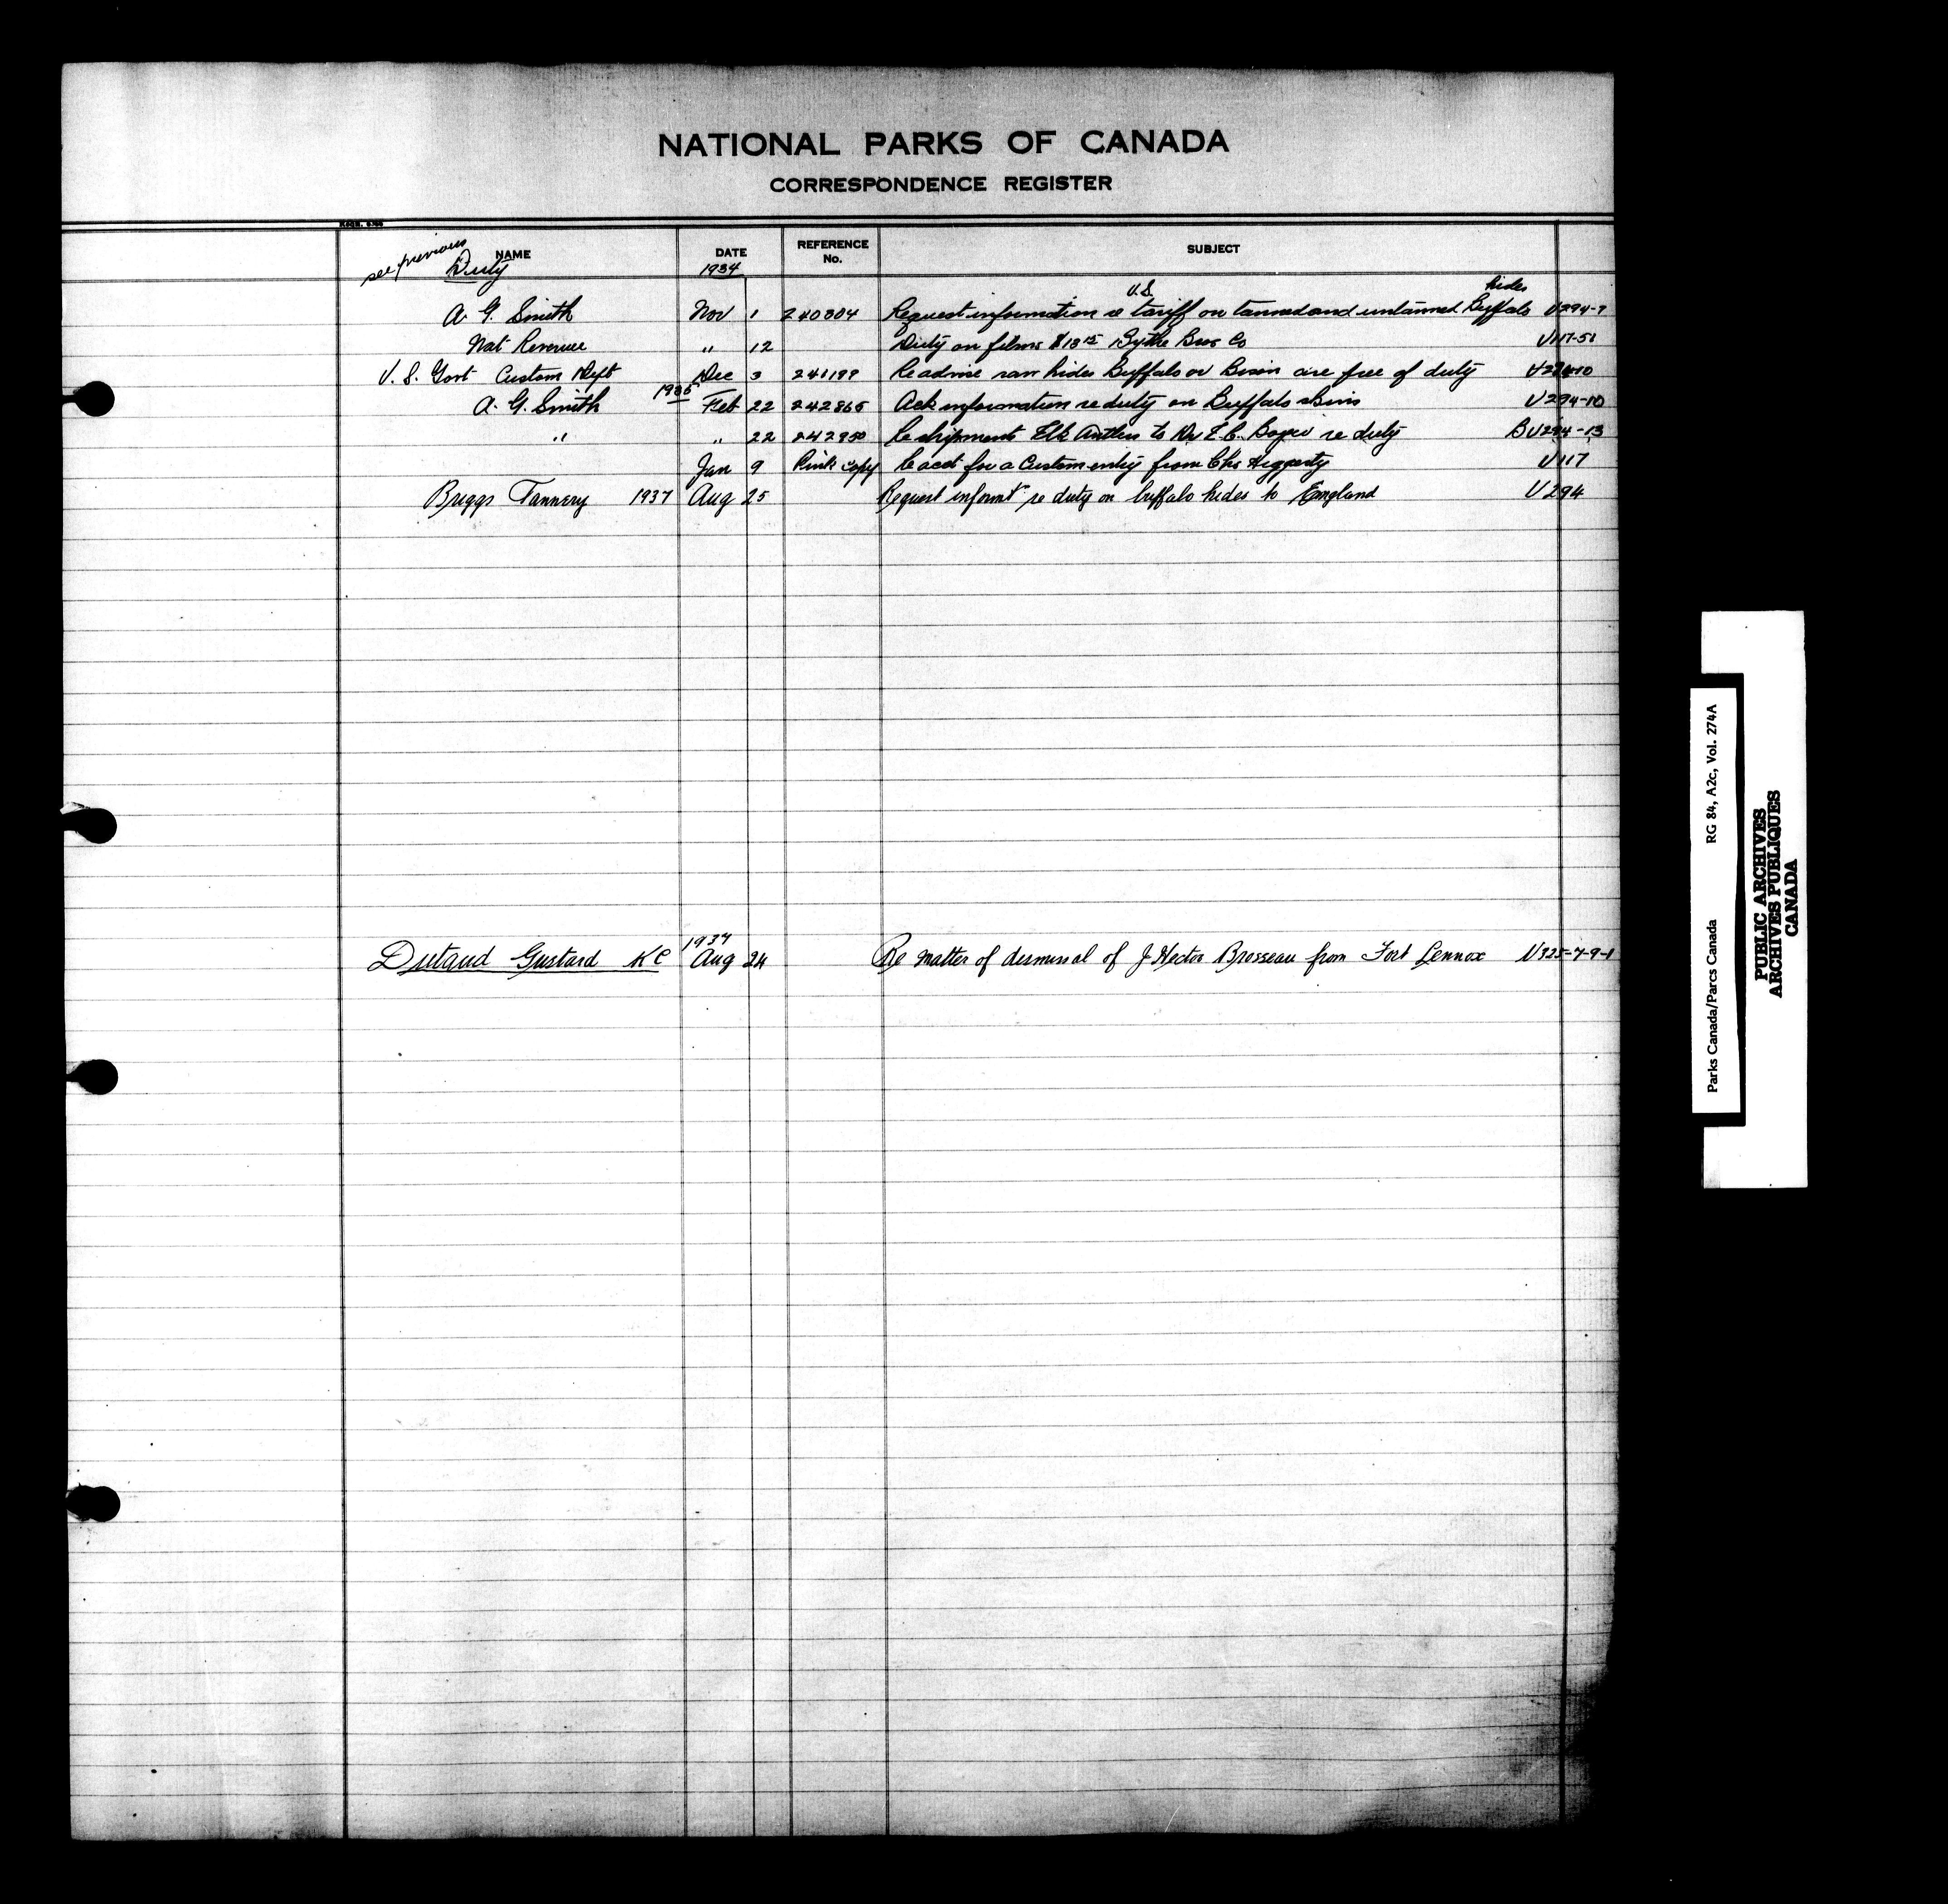 NATIONAL PARKS OF CANADA
CORRESPONDENCE REGISTER
NAME DATE REFERENCE No. SUBJECT
see previous
Duty 1934
A. G. Smith Nov 1 240804 Request information re U.S. tariff on tanned and untanned Buffalo hides U294-7
Nat Revenue " 12 Duty on films $13 Bus Co U117-51
U. S. Govt Custom Dept Dec 3 241199 Re advise raw hides Buffalo or Bison are free of duty
A. G. Smith 1935 Feb 22 242865 Ack information re duty on Buffalo skins U294-10
" " 22 242950 Re shipments Elk Antlers to Dr E.C. re duty BU294-13
Jan 9 Pink copy Re acct for a Custom entry from Chs Heggerty U117
Briggs Tannery 1937 Aug 25 Request informtn re duty on buffalo hides to England U294
Dutaud Gustard KC 1937 Aug 24 Re matter of dismissal of J Hector Brosseau from Fort Lennox U325-7-9-1
Parks Canada/Parcs Canada RG 84, A2c, Vol. 274A
PUBLIC ARCHIVES
ARCHIVES PUBLIQUES
CANADA